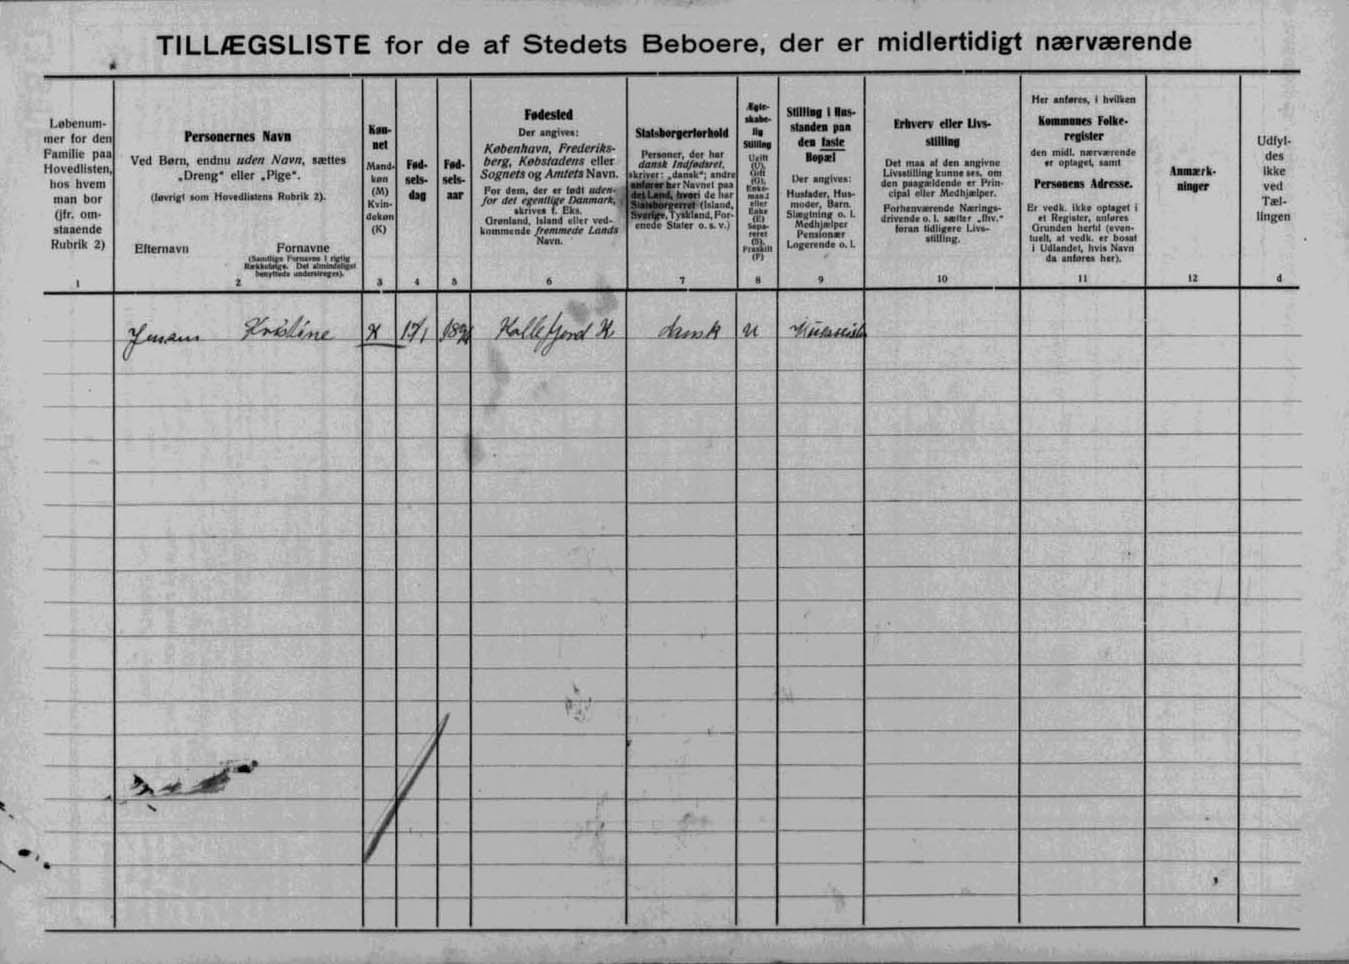 TILLÆGSLISTE for de af Stedets Beboere, der er midlertidigt nærværende
Løbenum-
mer for den
Familie paa
Hovedlisten,
hos hvem
man bor
(jfr. om-
staaende
Rubrik 2)
1
Personernes Navn
Ved Børn, endnu uden Navn, sættes
„Dreng“ eller „Pige“.
(Iøvrigt som Hovedlistens Rubrik 2).
Efternavn Fornavne
(Samtlige Fornavne i rigtig
Rækkefølge. Det almindeligst
benyttede understreges).
2
Køn-
net
Mand-
køn
(M)
Kvin-
dekøn
(K)
3
Fød-
sels-
dag
4
Fød-
sels-
aar
5
Fødested
Der angives:
København, Frederiks-
berg, Købstadens eller
Sognets og Amtets Navn.
For dem, der er født uden-
for det egentlige Danmark,
skrives f. Eks.
Grønland, Island eller ved-
kommende fremmede Lands
Navn.
6
Statsborgerforhold
Personer, der har
dansk Indfødsret,
skriver: „dansk“; andre
anfører her Navnet paa
det Land, hvori de har
Statsborgerret (Island,
Sverige, Tyskland, For-
enede Stater o. s. v.)
7
Ægte-
skabe-
lig
Stilling
Ugift
(U),
Gift
(G),
Enke-
mand
eller
Enke
(E)
Sepa-
reret
(S),
Fraskilt
(F)
8
Stilling i Hus-
standen paa
den faste
Bopæl
Der angives:
Husfader, Hus-
moder, Barn,
Slægtning o. l.
Medhjælper
Pensionær
Logerende o. l.
9
Erhverv eller Livs-
stilling
Det maa af den angivne
Livsstilling kunne ses, om
den paagældende er Prin-
cipal eller Medhjælper.
Forhenværende Nærings-
drivende o. l. sætter „fhv.“
foran tidligere Livs-
stilling.
10
Her anføres, i hvilken
Kommunes Folke-
register
den midl. nærværende
er optaget, samt
Personens Adresse.
Er vedk. ikke optaget i
et Register, anføres
Grunden hertil (even-
tuelt, at vedk. er bosat
i Udlandet, hvis Navn
da anføres her).
11
Anmærk-
ninger
12
Udfyl-
des
ikke
ved
Tæl-
lingen
d
Kristine K dansk U